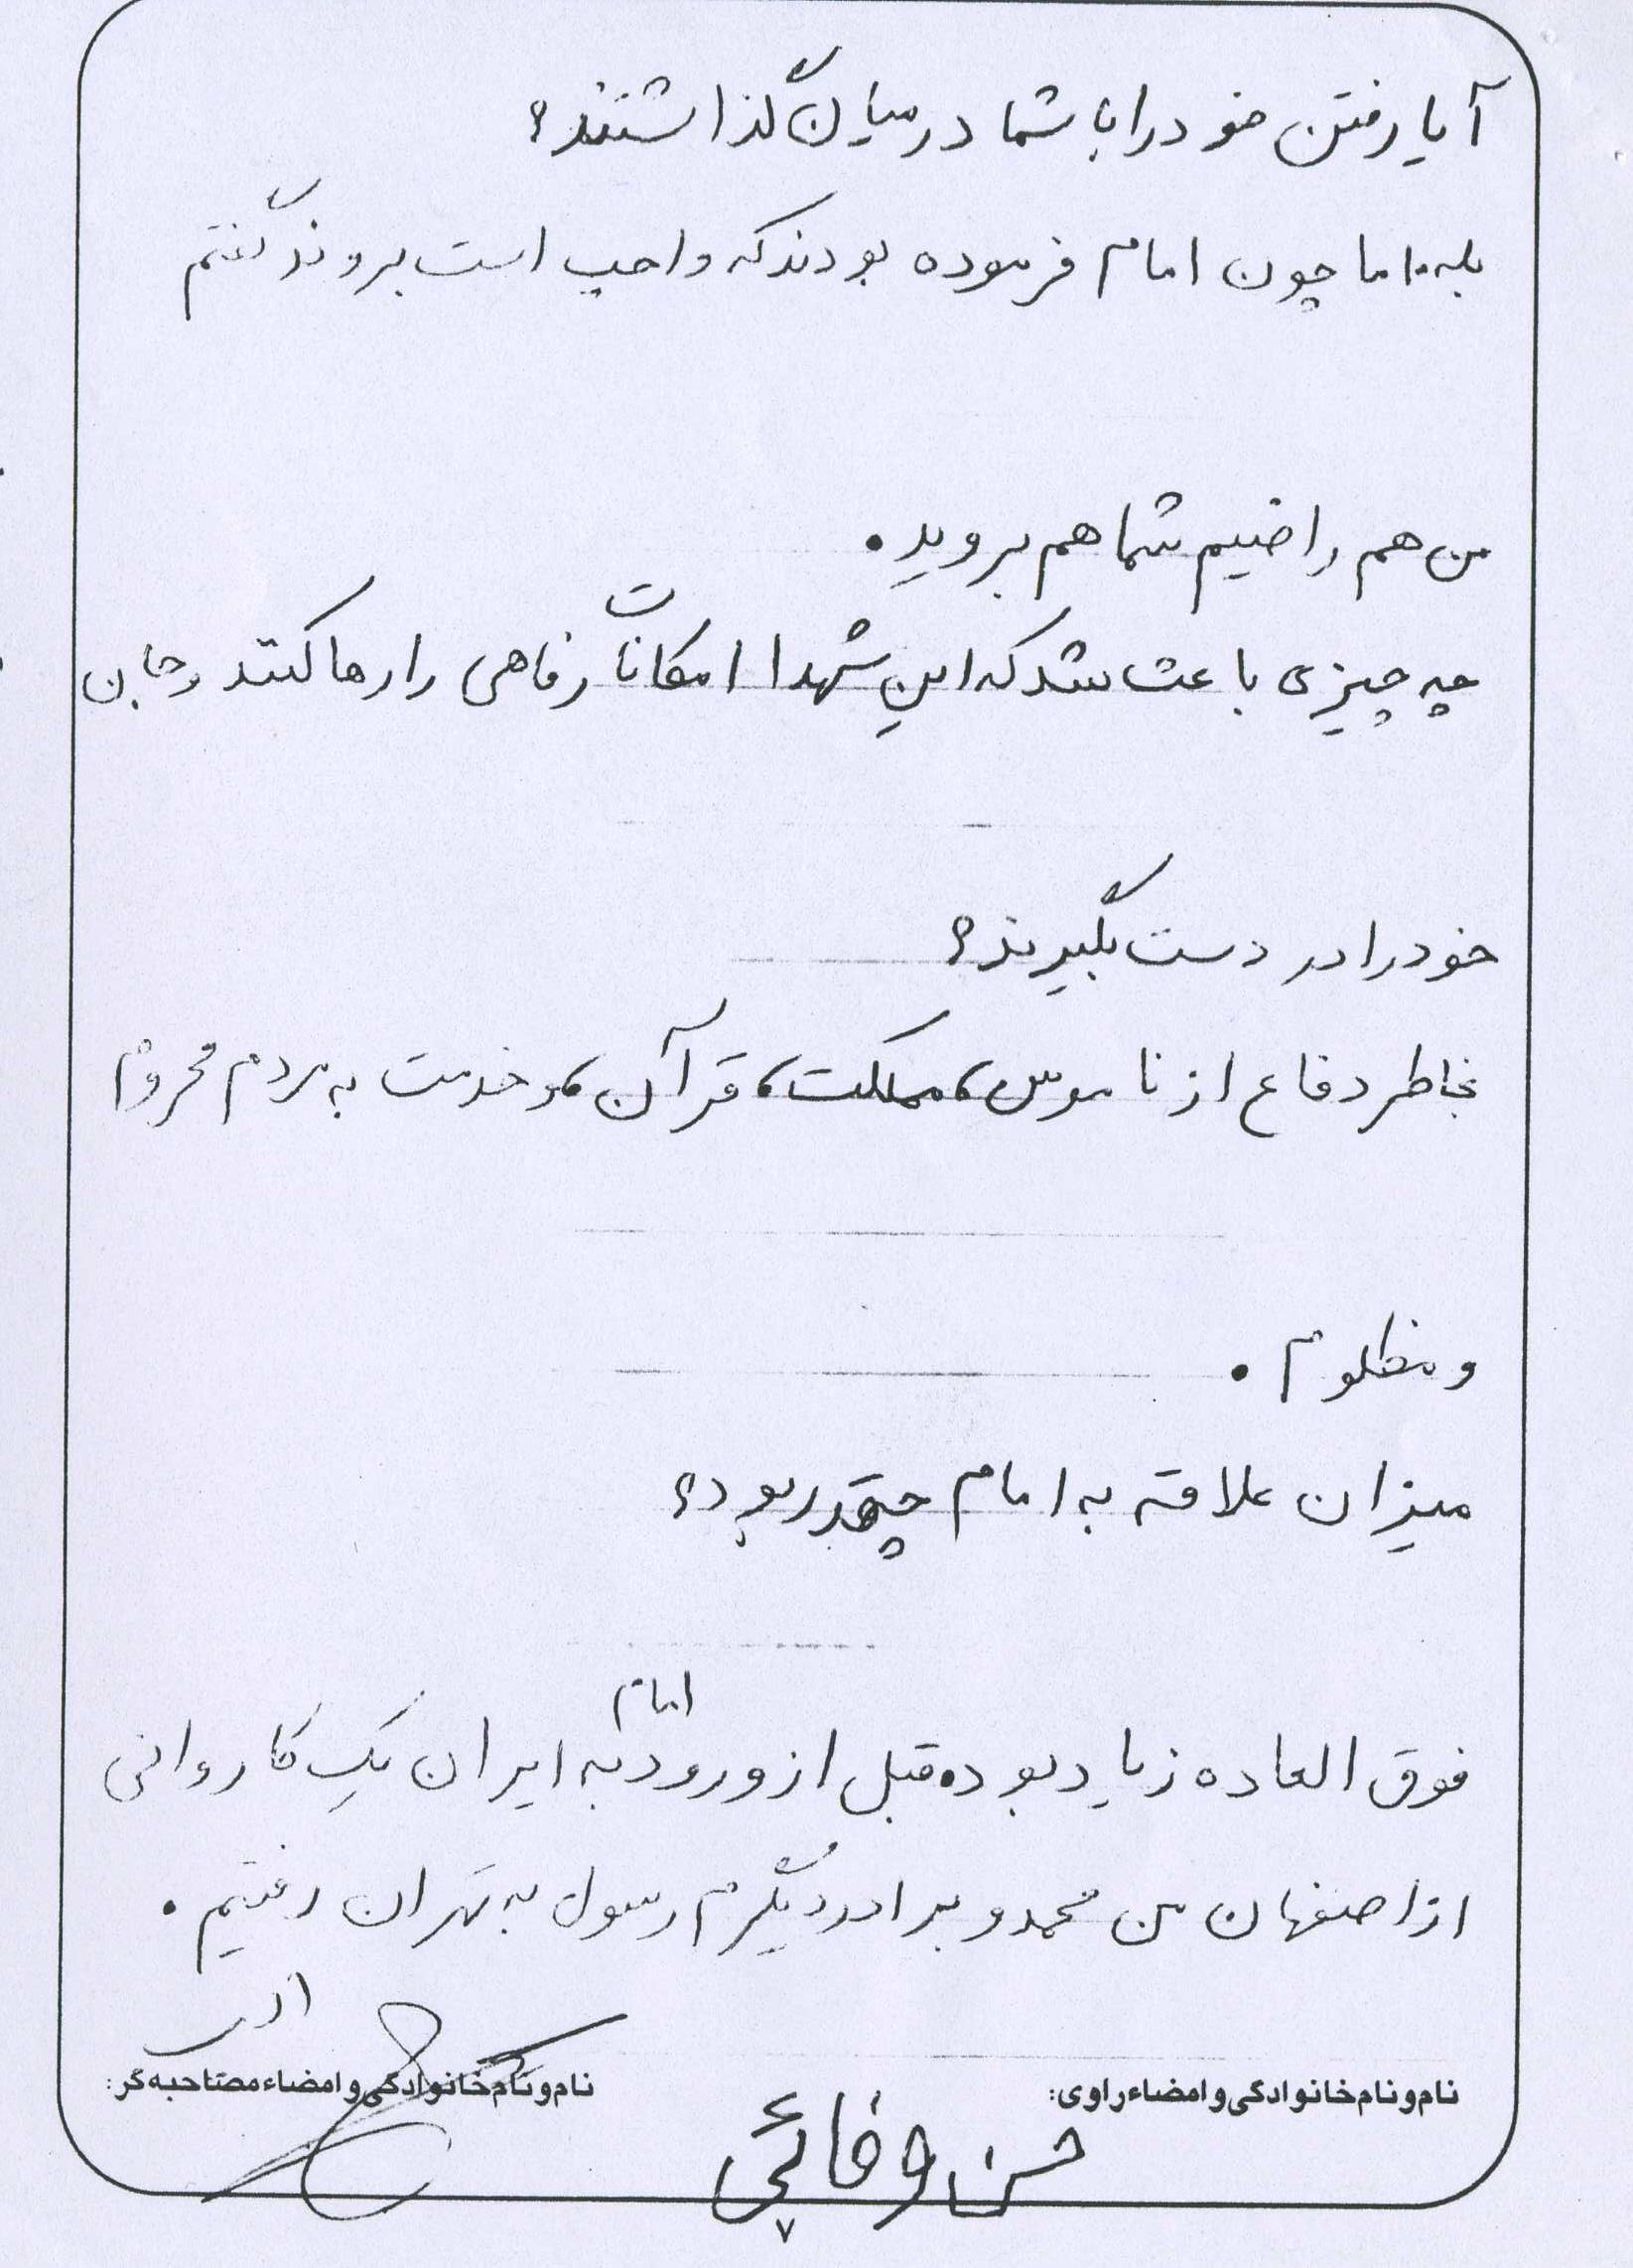 آیا رفتن خود را با شما در میان گذاشتند؟
بله. اما چون امام فرموده بودند که واجب است بروند گفتم
من هم راضیم شما هم بروید.
چه چیزی باعث شد که این شهدا امکانات رفاهی را رها کنند و جان
خود را در دست بگیرند؟
بخاطر دفاع از ناموس، مملکت، قرآن، و خدمت به مردم محروم
و مظلوم.
میزان علاقه به امام چقدر بود؟
فوق العاده زیاد بوده قبل از ورود امام به ایران یک کاروانی
از اصفهان من محمد و برادر دیگرم رسول به تهران رفتیم.
نام و نام خانوادگی و امضاء راوی:
نام و نام خانوادگی و امضاء مصاحبه گر:
حسن وفائی
۷